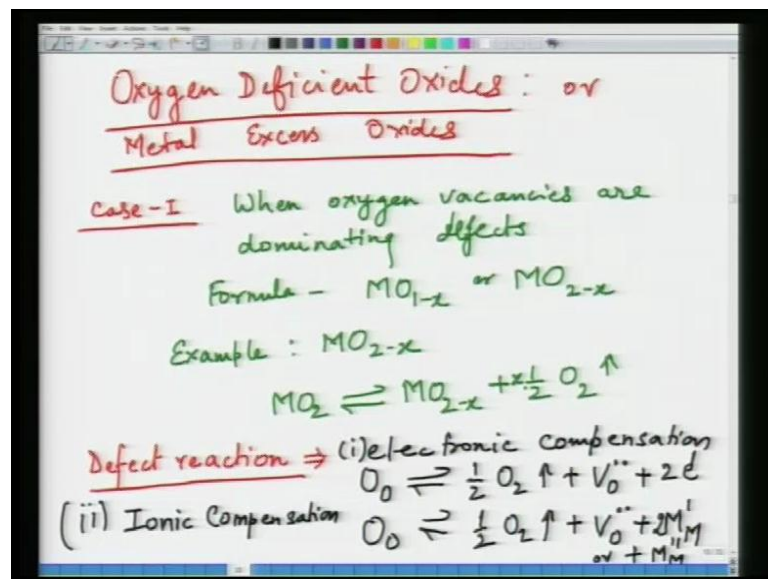 Oxygen Deficient Oxides : or
Metal Excess Oxides
Case-I When oxygen vacancies are
dominating defects
Formula - MO₁₋ₓ or MO₂₋ₓ
Example : MO₂₋ₓ
MO₂ ⇌ MO₂₋ₓ + x·½ O₂ ↑
Defect reaction ⇒ (i) electronic compensation
O_O ⇌ ½ O₂ ↑ + V_O¨ + 2e'
(ii) Ionic Compensation O_O ⇌ ½ O₂ ↑ + V_O¨ + 2M'_M
or + M''_M